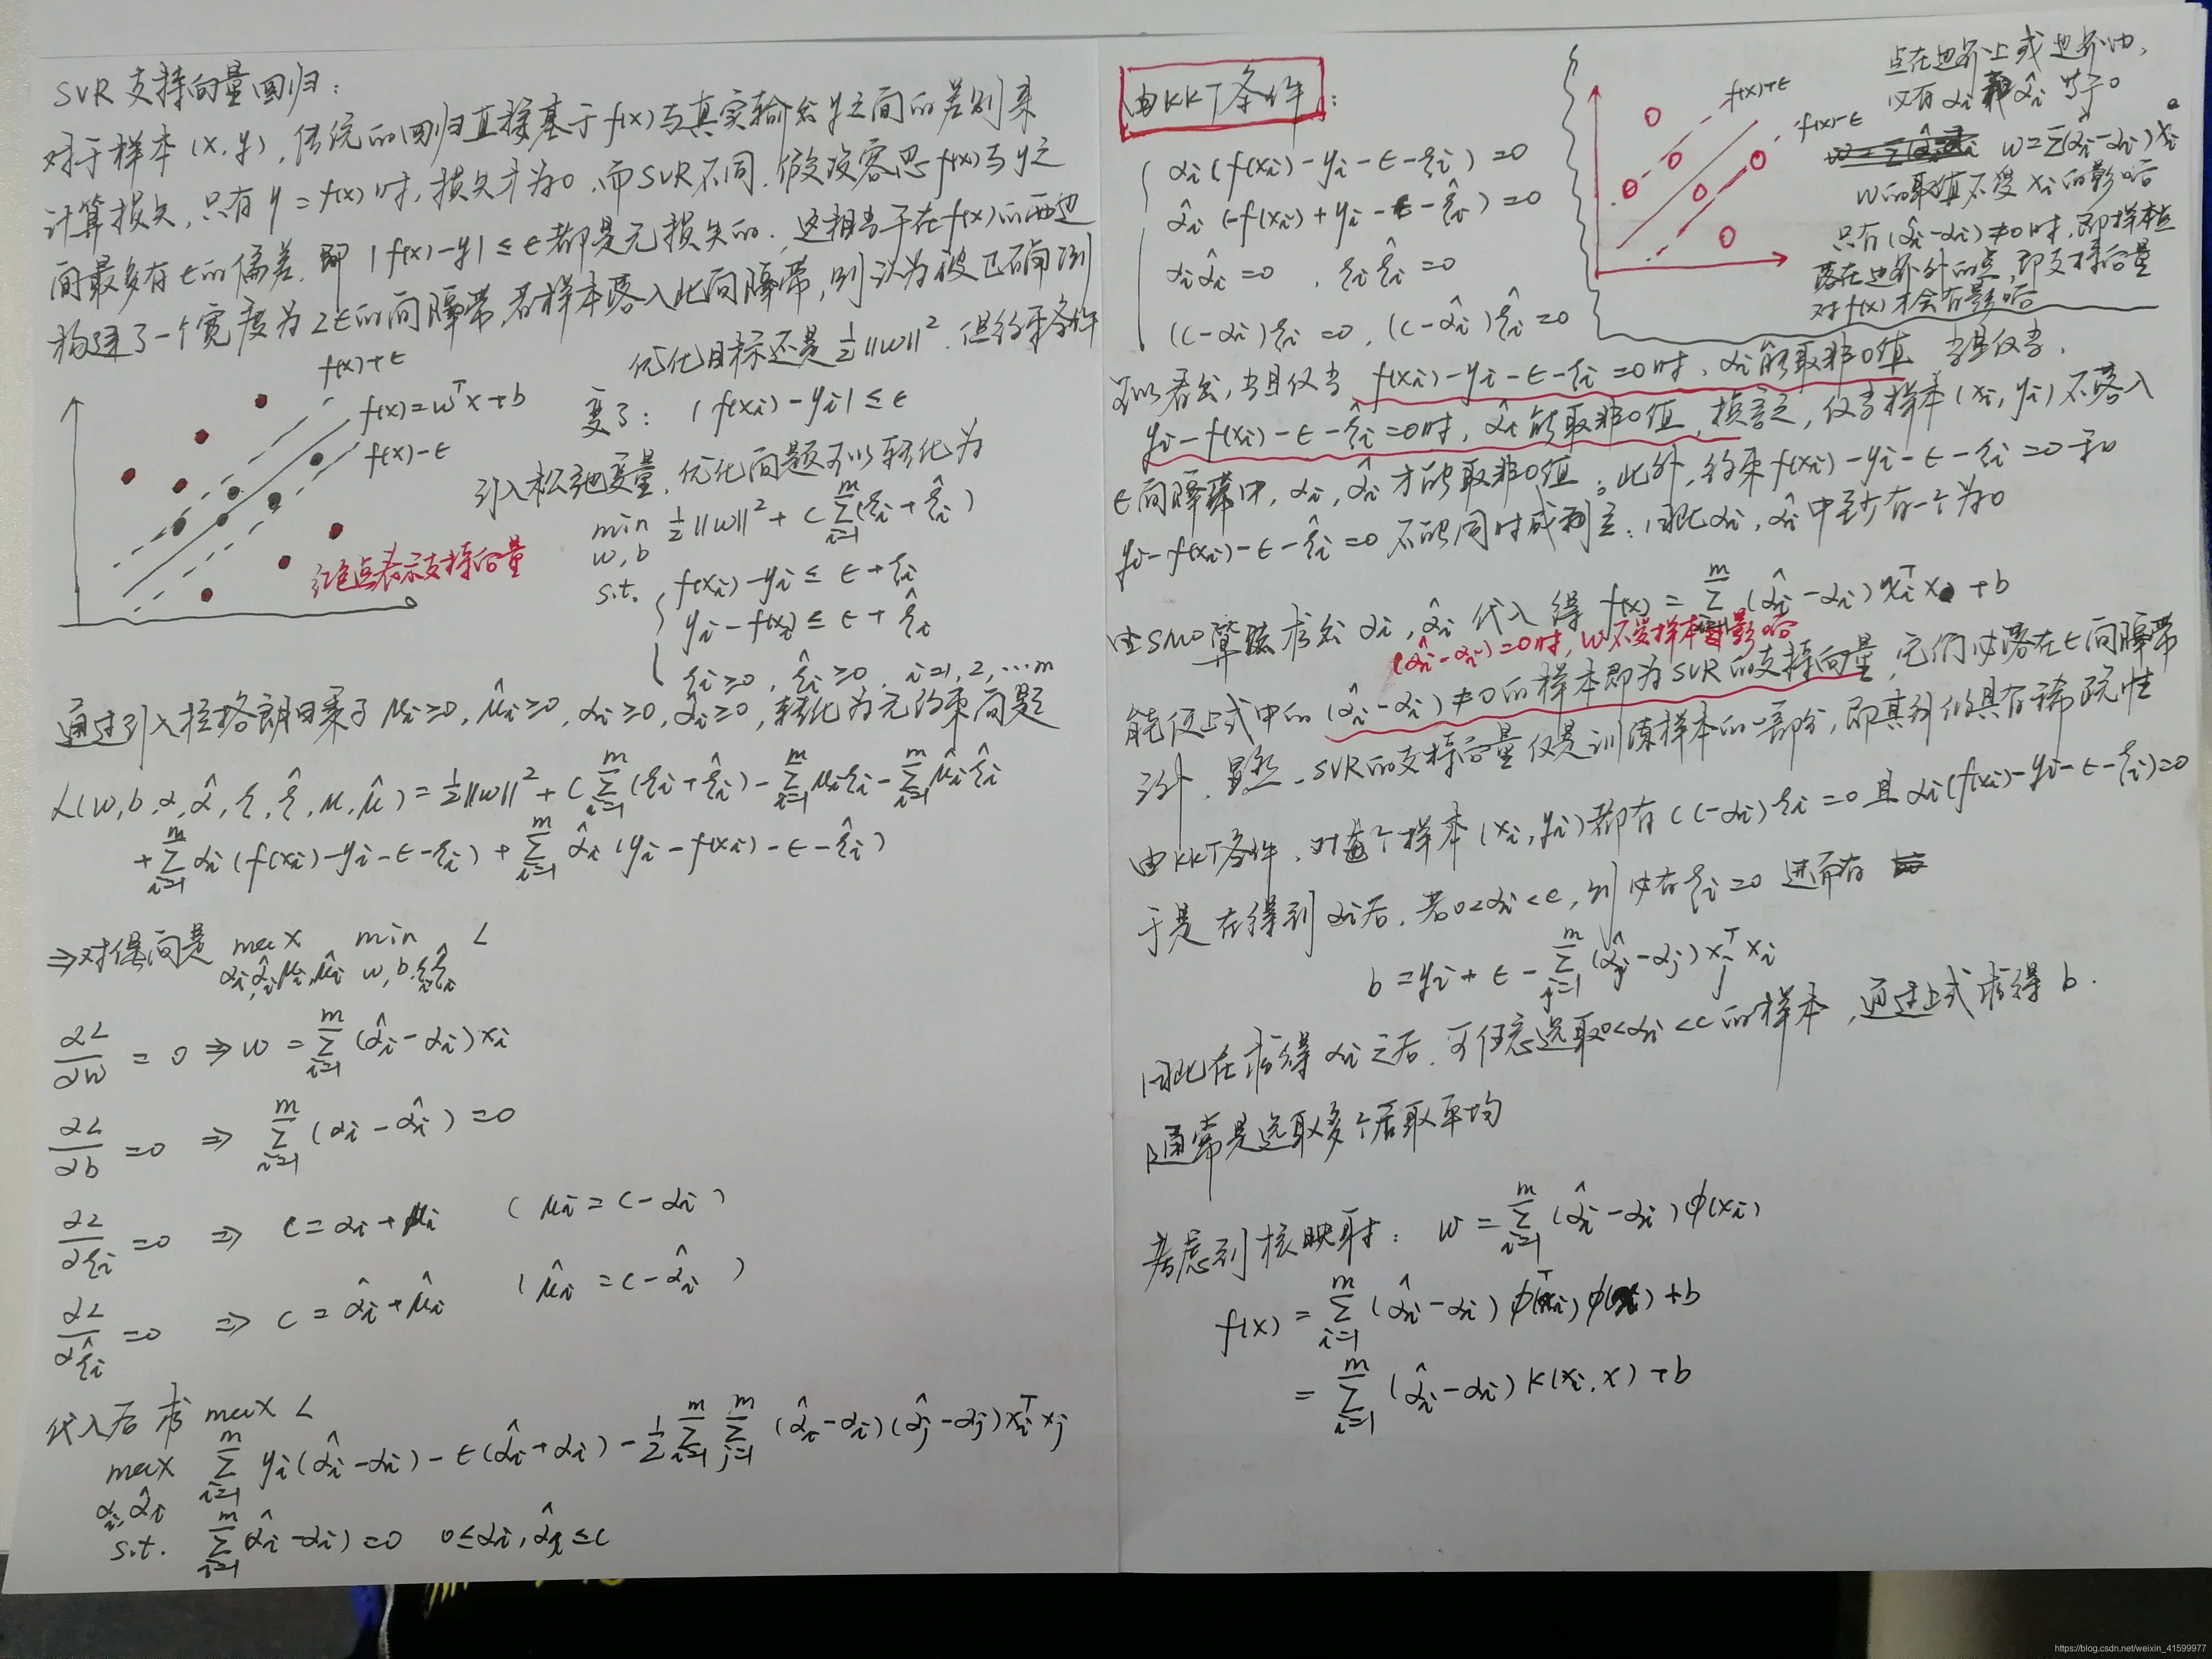 SVR 支持向量回归:
对于样本 (x, y), 传统的回归直接基于 f(x) 与真实输出 y 之间的差别来
计算损失, 只有 y = f(x) 时, 损失才为 0, 而 SVR 不同. 假设容忍 f(x) 与 y 之
间最多有 ϵ 的偏差, 即 |f(x)-y| ≤ ϵ 都是无损失的, 这相当于在 f(x) 的两边
构建了一个宽度为 2ϵ 的间隔带, 若样本落入此间隔带, 则认为被正确预测
f(x)+ϵ
f(x)=wᵀx+b
f(x)-ϵ
红色点表示支持向量
优化目标还是 ½||w||². 但约束条件
变了: |f(xi)-yi| ≤ ϵ
引入松弛变量, 优化问题可以转化为
min ½||w||² + C∑(ξi+ξ̂i)
w,b i=1 m
s.t. f(xi)-yi ≤ ϵ+ξi
yi-f(xi) ≤ ϵ+ξ̂i
ξi≥0, ξ̂i≥0, i=1,2,…m
通过引入拉格朗日乘子 μi≥0, μ̂i≥0, αi≥0, α̂i≥0, 转化为无约束问题
L(w,b,α,α̂,ξ,ξ̂,μ,μ̂) = ½||w||² + C∑ᵐᵢ₌₁(ξi+ξ̂i) - ∑ᵐᵢ₌₁μiξi - ∑ᵐᵢ₌₁μ̂iξ̂i
+∑ᵐᵢ₌₁αi(f(xi)-yi-ϵ-ξi) + ∑ᵐᵢ₌₁α̂i(yi-f(xi)-ϵ-ξ̂i)
⇒对偶问题 max min L
αi,α̂i,μi,μ̂i w,b,ξi,ξ̂i
∂L/∂w = 0 ⇒ w = ∑ᵐᵢ₌₁(α̂i-αi)xi
∂L/∂b = 0 ⇒ ∑ᵐᵢ₌₁(αi-α̂i)=0
∂L/∂ξi = 0 ⇒ C=αi+μi (μi=C-αi)
∂L/∂ξ̂i = 0 ⇒ C=α̂i+μ̂i (μ̂i=C-α̂i)
代入后求 max L
max ∑ᵐᵢ₌₁ yi(α̂i-αi) - ϵ(α̂i+αi) - ½∑ᵐᵢ₌₁∑ᵐⱼ₌₁(α̂i-αi)(α̂j-αj)xiᵀxj
αi,α̂i
s.t. ∑ᵐᵢ₌₁(α̂i-αi)=0 0≤αi,α̂i≤C
由KKT条件:
αi(f(xi)-yi-ϵ-ξi)=0
α̂i(-f(xi)+yi-ϵ-ξ̂i)=0
αiα̂i=0, ξiξ̂i=0
(C-αi)ξi=0, (C-α̂i)ξ̂i=0
f(x)+ϵ
f(x)-ϵ
点在边界上或边界内,
必有 αi 和 α̂i 等于0
w=∑(α̂i-αi)xi
w的取值不受 xi 的影响
只有 (α̂i-αi)≠0时, 即样本点
落在边界外的点, 即支持向量
对 f(x) 才会有影响
可以看出, 当且仅当 f(xi)-yi-ϵ-ξi=0时, αi能取非0值, 当且仅当,
yi-f(xi)-ϵ-ξ̂i=0时, α̂i能取非0值, 换言之, 仅当样本 (xi, yi) 不落入
ϵ间隔带中, αi, α̂i 才能取非0值。此外, 约束 f(xi)-yi-ϵ-ξi=0 和
yi-f(xi)-ϵ-ξ̂i=0 不能同时成立; 因此αi, α̂i 中至少有一个为0
由SMO算法求出 αi, α̂i 代入得 f(x)=∑ᵐᵢ₌₁(α̂i-αi)xiᵀx+b
(α̂i-αi)=0时, w不受样本影响
能使上式中的 (α̂i-αi)≠0 的样本即为SVR的支持向量, 它们必落在ϵ间隔带
之外, 显然, SVR的支持向量仅是训练样本的一部分, 即其解仍具有稀疏性
由KKT条件, 对每个样本 (xi, yi) 都有 (C-αi)ξi=0 且 αi(f(xi)-yi-ϵ-ξi)=0
于是在得到 αi后, 若0<αi<C, 则必有ξi=0 进而有
b=yi+ϵ-∑ᵐⱼ₌₁(α̂j-αj)xjᵀxi
因此在求得 αi 之后, 可任意选取0<αi<C的样本, 通过上式求得 b.
通常是选取多个后取平均
考虑到核映射: w=∑ᵐᵢ₌₁(α̂i-αi)ϕ(xi)
f(x)=∑ᵐᵢ₌₁(α̂i-αi)ϕᵀ(xi)ϕ(x)+b
=∑ᵐᵢ₌₁(α̂i-αi)K(xi,x)+b
https://blog.csdn.net/weixin_41599977